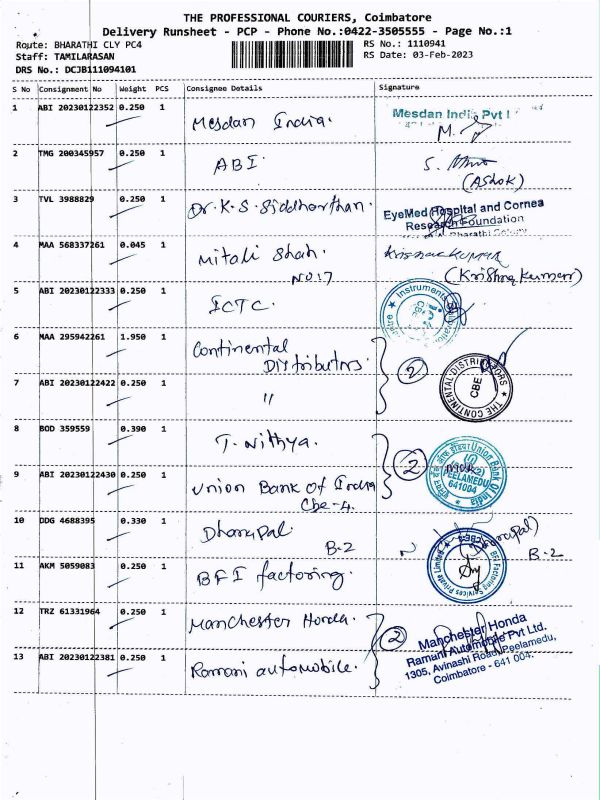 THE PROFESSIONAL COURIERS, Coimbatore
Delivery Runsheet - PCP - Phone No.:0422-3505555 - Page No.:1
Route: BHARATHI CLY PC4 RS No.: 1110941
Staff: TAMILARASAN RS Date: 03-Feb-2023
DRS No.: DCJB111094101
S No Consignment No Weight PCS Consignee Details Signature
1 ABI 20230122352 0.250 1
Mesdan India. Mesdan India Pvt
M.
2 TMG 200345957 0.250 1
ABI S.
(Ashok)
3 TVL 3988829 0.250 1
Dr. K. S. Siddharthan. EyeMed Hospital and Cornea
Research Foundation
Bharathi Colony
4 MAA 568337261 0.045 1
Mitali Shah. Krishnakumar
No:7 (Krishna Kumar)
5 ABI 20230122333 0.250 1
ICTC. Instruments
CBE
6 MAA 295942261 1.950 1
Continental
Distributors. 2
7 ABI 20230122422 0.250 1
" THE CONTINENTAL DISTRIBUTORS
CBE
8 BOD 359559 0.390 1
T. Nithya. 2
9 ABI 20230122430 0.250 1
Union Bank Of India Union Bank Of India
Cbe-4. PEELAMEDU
641004
10 DDG 4688395 0.330 1
Dharupal.
B-2 B-2
11 AKM 5059083 0.250 1
BFI factoring. BFI Factoring Services Private Limited
12 TRZ 61331964 0.250 1
Manchester Honda. 2 Manchester Honda
Ramani Automobile Pvt Ltd.
1305, Avinashi Road, Peelamedu,
Coimbatore - 641 004.
13 ABI 20230122381 0.250 1
Ramani automobile.